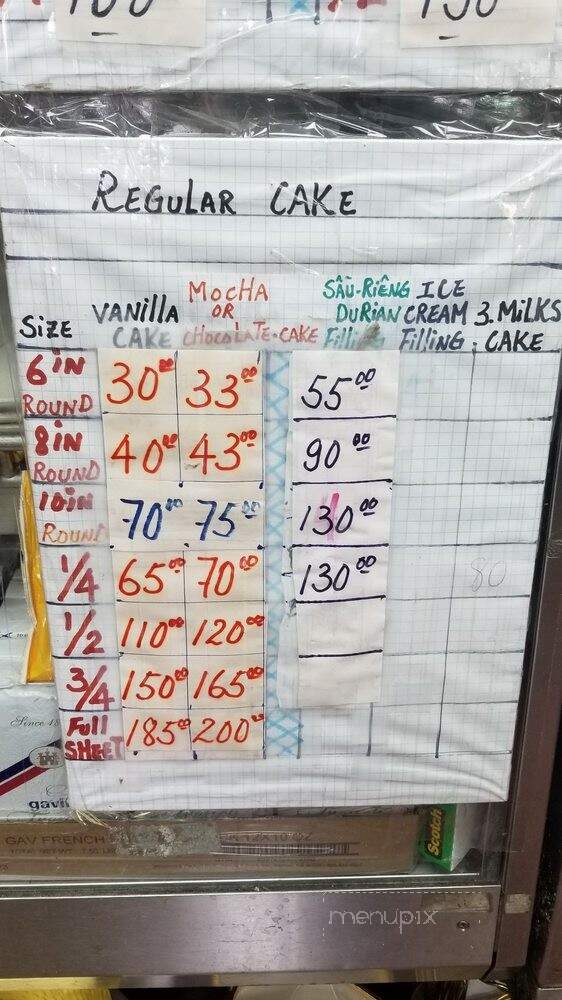 REGULAR CAKE
Size VANillA CAKE MOCHA OR CHOCOLATE-CAKE SÂÙ-RIÊNG DURIAN Filling ICE CREAM Filling 3. MiLKS CAKE
6iN ROUND 30⁰⁰ 33⁰⁰ 55⁰⁰
8iN ROUND 40⁰⁰ 43⁰⁰ 90⁰⁰
10iN ROUND 70⁰⁰ 75⁰⁰ 130⁰⁰
1/4 65⁰⁰ 70⁰⁰ 130⁰⁰ 80
1/2 110⁰⁰ 120⁰⁰
3/4 150⁰⁰ 165⁰⁰
Full SHEET 185⁰⁰ 200⁰⁰
Since
gavi
GAV FRENCH
Scotch
menupix